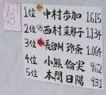 1位 中村歩加 1,615
2位 西村菜那子 1,134
3位 長谷川玲奈 1,064
4位 小熊倫実 962
5位 本間日陽 931